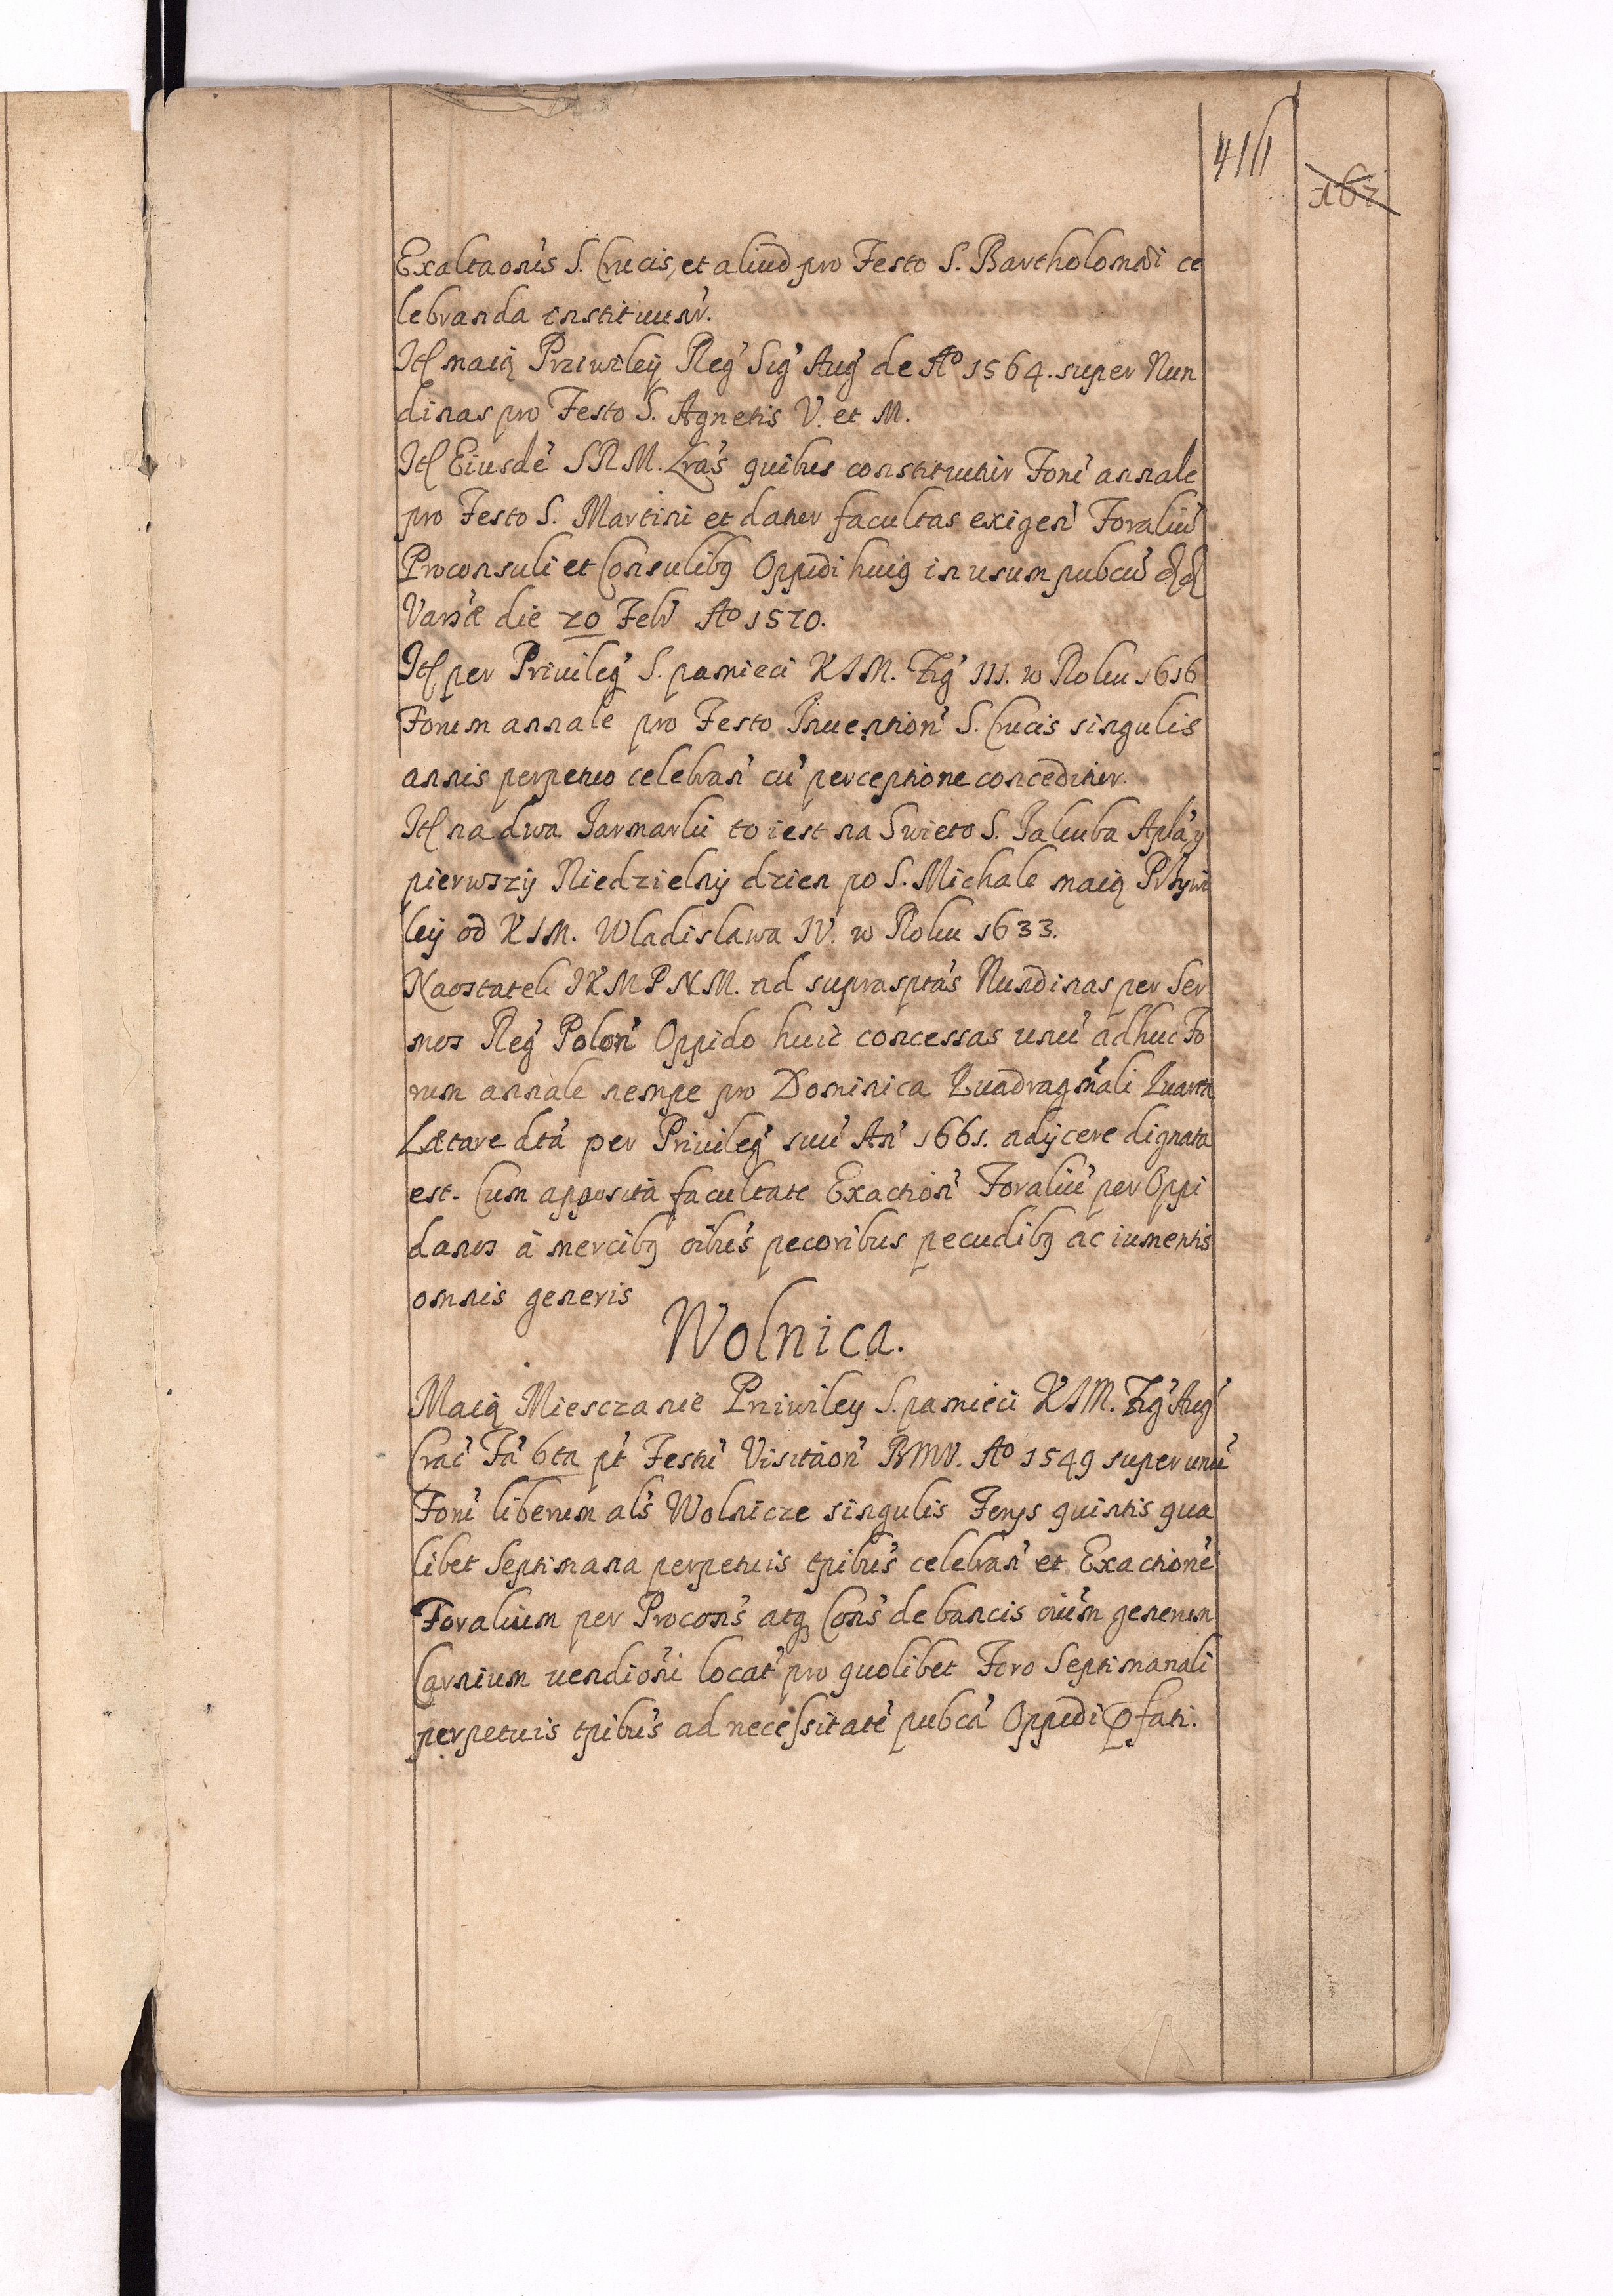 411
167
Exaltaonis S. Crucis, et aliud pro Festo S. Bartholomæi ce
lebranda instituunr.
Itē maią Priwiley Reg' Sig' Aug' de Aº 1564. super Nun
dinas pro Festo S. Agnetis V. et M.
Itē Eiusdē SRM. Lras quibus constituitur Forū annale
pro Festo S. Martini et datur facultas exigen' Foraliū
Proconsuli et Consulibq Oppidi huiq in usum pubcū
Varsæ die 20 Feb' Aº 1570.
Itē per Privileg' S. pamieci KJM. Zyg' III. w Roku 1616
Forum annale pro Festo Invention' S. Crucis singulis
annis perpetuo celebran' cū perceptione conceditur.
Itē na dwa Jarmarki to iest na Swieto S. Jakuba Apła y
pierwszy Niedzielny dzien po S. Michale maią Przywi
ley od KJM. Wladislawa IV. w Roku 1633.
Naostatek JKMPNM. ad supraspta's Nundinas per Ser
mos Reg' Polon' Oppido huic concessas unū adhuc Fo
rum annale nempe pro Dominica Quadragm̄ali Quarta
Lætare dtā per Privileg' suū An' 1661. adijcere dignata
est. Cum apposita facultate Exaction' Foraliū per Oppi
danos à mercibq oibus pecoribus pecudibq ac iumentis
omnis generis
Wolnica.
Maią Miesczanie Priwiley S. pamieci KJM. Zyg' Aug'
Crac' Fā 6ta pt Festū Visitaon' BMV. Aº 1549 super unū
Forū liberum als Wolnicze singulis Ferys quintis qua
libet Septimana perpetuis tpibus celebran' et Exactionē
Foralium per Procons atq Cons de bancis oium generum
Carnium vendioni locat' pro quolibet Foro Septimanali
perpetuis tpibus ad necessitatē pubcā Oppidi pfati.